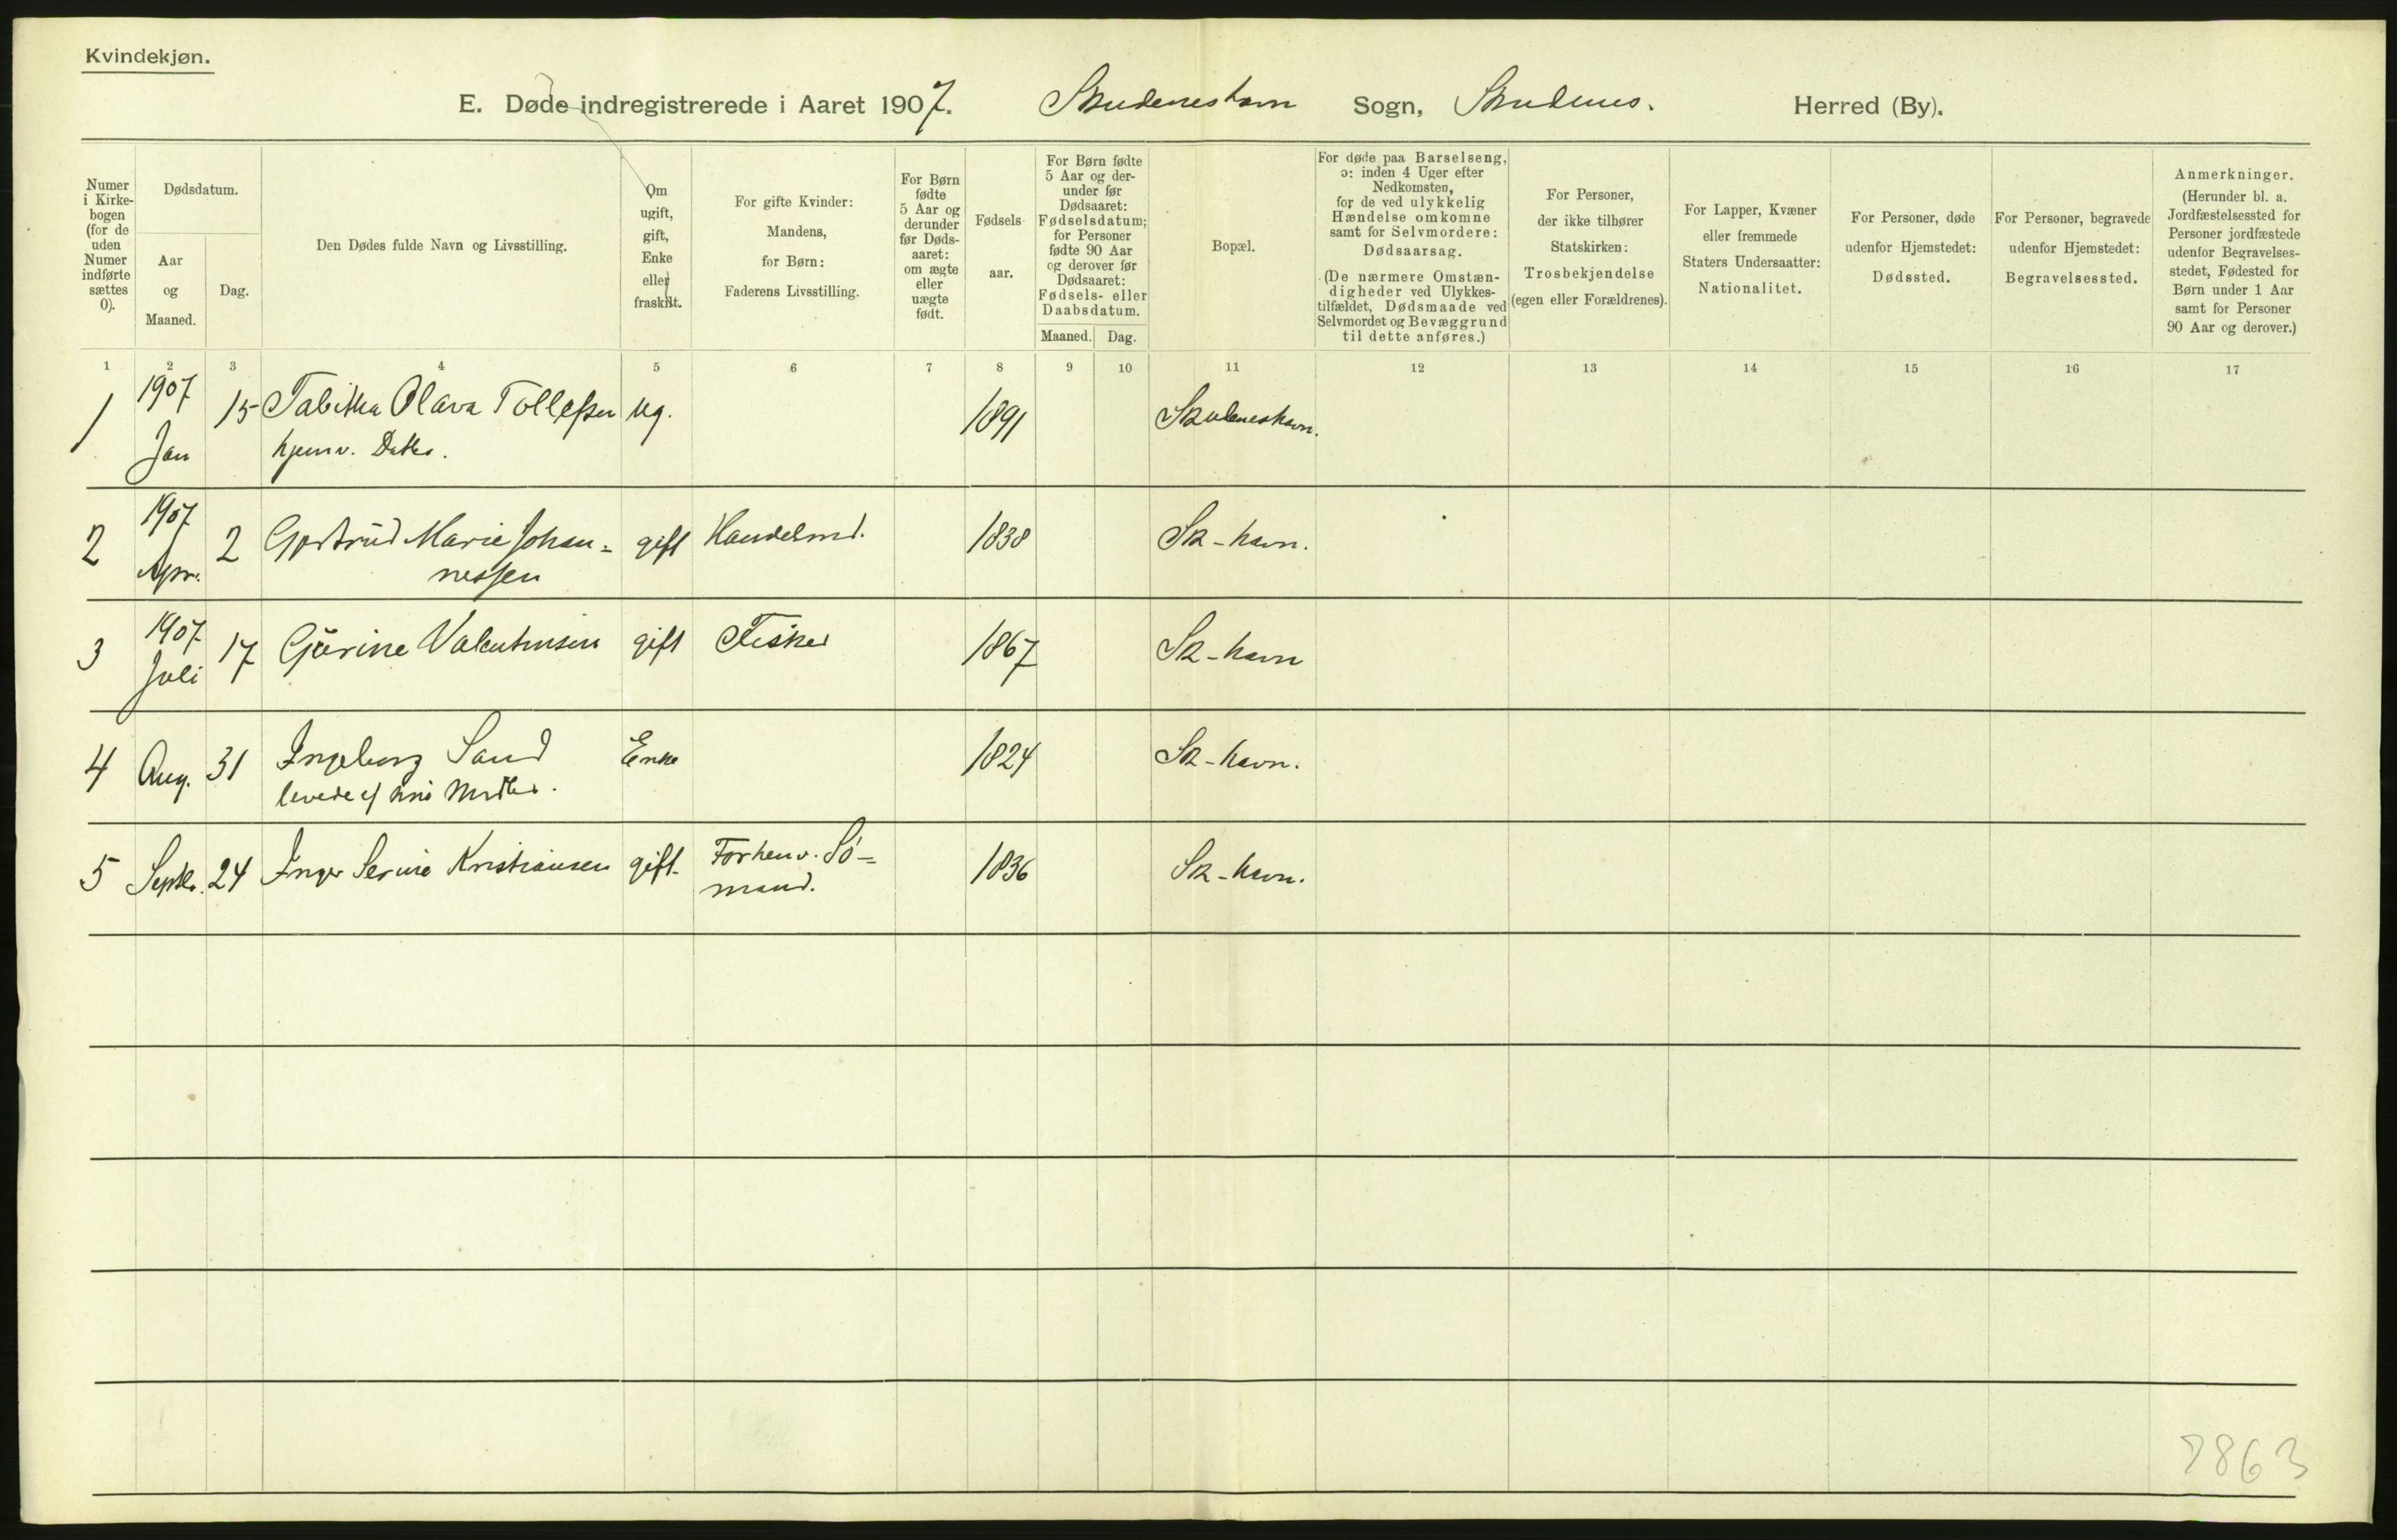 Kvindekjøn.
E. Døde indregistrerede i Aaret 1907. Skudeneshavn Sogn, Skudenes. Herred (By).
Numer
i Kirke-
bogen
(for de
uden
Numer
indførte
sættes
0).
Dødsdatum.
Aar
og
Maaned.
Dag.
Den Dødes fulde Navn og Livsstilling.
Om
ugift,
gift,
Enke
eller
fraskilt.
For gifte Kvinder:
Mandens,
for Børn:
Faderens Livsstilling.
For Børn
fødte
5 Aar og
derunder
før Døds-
aaret:
om ægte
eller
uægte
født.
Fødsels-
aar.
For Børn fødte
5 Aar og der-
under før
Dødsaaret:
Fødselsdatum;
for Personer
fødte 90 Aar
og derover før
Dødsaaret:
Fødsels- eller
Daabsdatum.
Maaned. Dag.
Bopæl.
For døde paa Barselseng,
ɔ: inden 4 Uger efter
Nedkomsten,
for de ved ulykkelig
Hændelse omkomne
samt for Selvmordere:
Dødsaarsag.
(De nærmere Omstæn-
digheder ved Ulykkes-
tilfældet, Dødsmaade ved
Selvmordet og Bevæggrund
til dette anføres.)
For Personer,
der ikke tilhører
Statskirken:
Trosbekjendelse
(egen eller Forældrenes).
For Lapper, Kvæner
eller fremmede
Staters Undersaatter:
Nationalitet.
For Personer, døde
udenfor Hjemstedet:
Dødssted.
For Personer, begravede
udenfor Hjemstedet:
Begravelsessted.
Anmerkninger.
(Herunder bl. a.
Jordfæstelsessted for
Personer jordfæstede
udenfor Begravelses-
stedet, Fødested for
Børn under 1 Aar
samt for Personer
90 Aar og derover.)
1 2 3 4 5 6 7 8 9 10 11 12 13 14 15 16 17
1907
1 15 Tabitha Olava Tollefsen ug. 1891 Skudeneshavn.
Jan hjemv. Datter.
1907
2 Apr. 2 Gjertrud Marie Johan= gift Handelsmd. 1838 Sk-havn.
nessen
1907
3 Juli 17 Gürine Valentinsen gift Fisker 1867 Sk-havn
4 Aug. 31 Ingeborg Sand Enke 1824 Sk-havn.
levede af sine Midler.
5 Septbr. 24 Inger Serine Kristiansen gift. Forhenv. Sø= 1836 Sk-havn.
mand.
7863